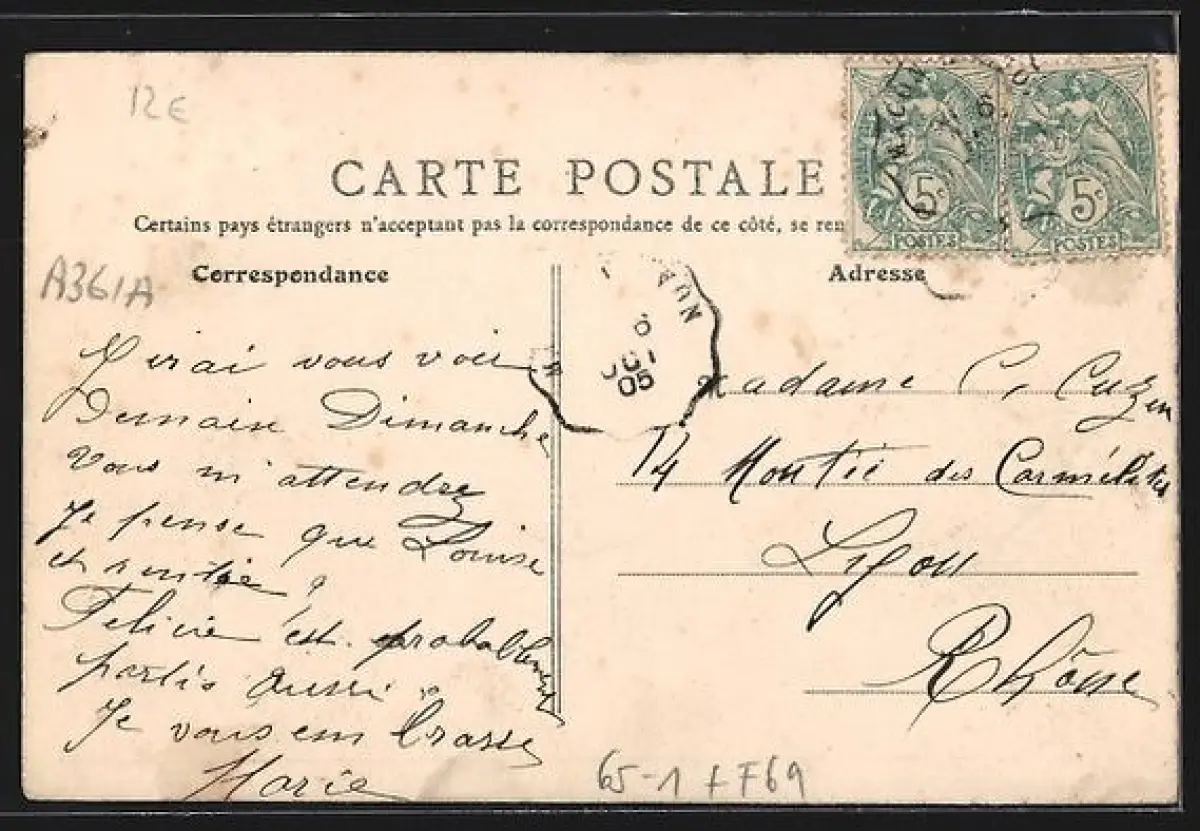 12€
CARTE POSTALE
Certains pays étrangers n'acceptant pas la correspondance de ce côté, se ren
A361A
Correspondance
J'irai vous voir
Demain Dimanche
Vous m'attendrez
Je pense que Louise
et rentrée ?
Felicie est probablement
partis aussi ?
Je vous embrasse
Marie
Adresse
Madame C. Cuzin
14 Montée des Carmélites
Lyon
Rhône
5c
POSTES
5c
POSTES
MACON
6
NUA
6
05
65-1 + F69